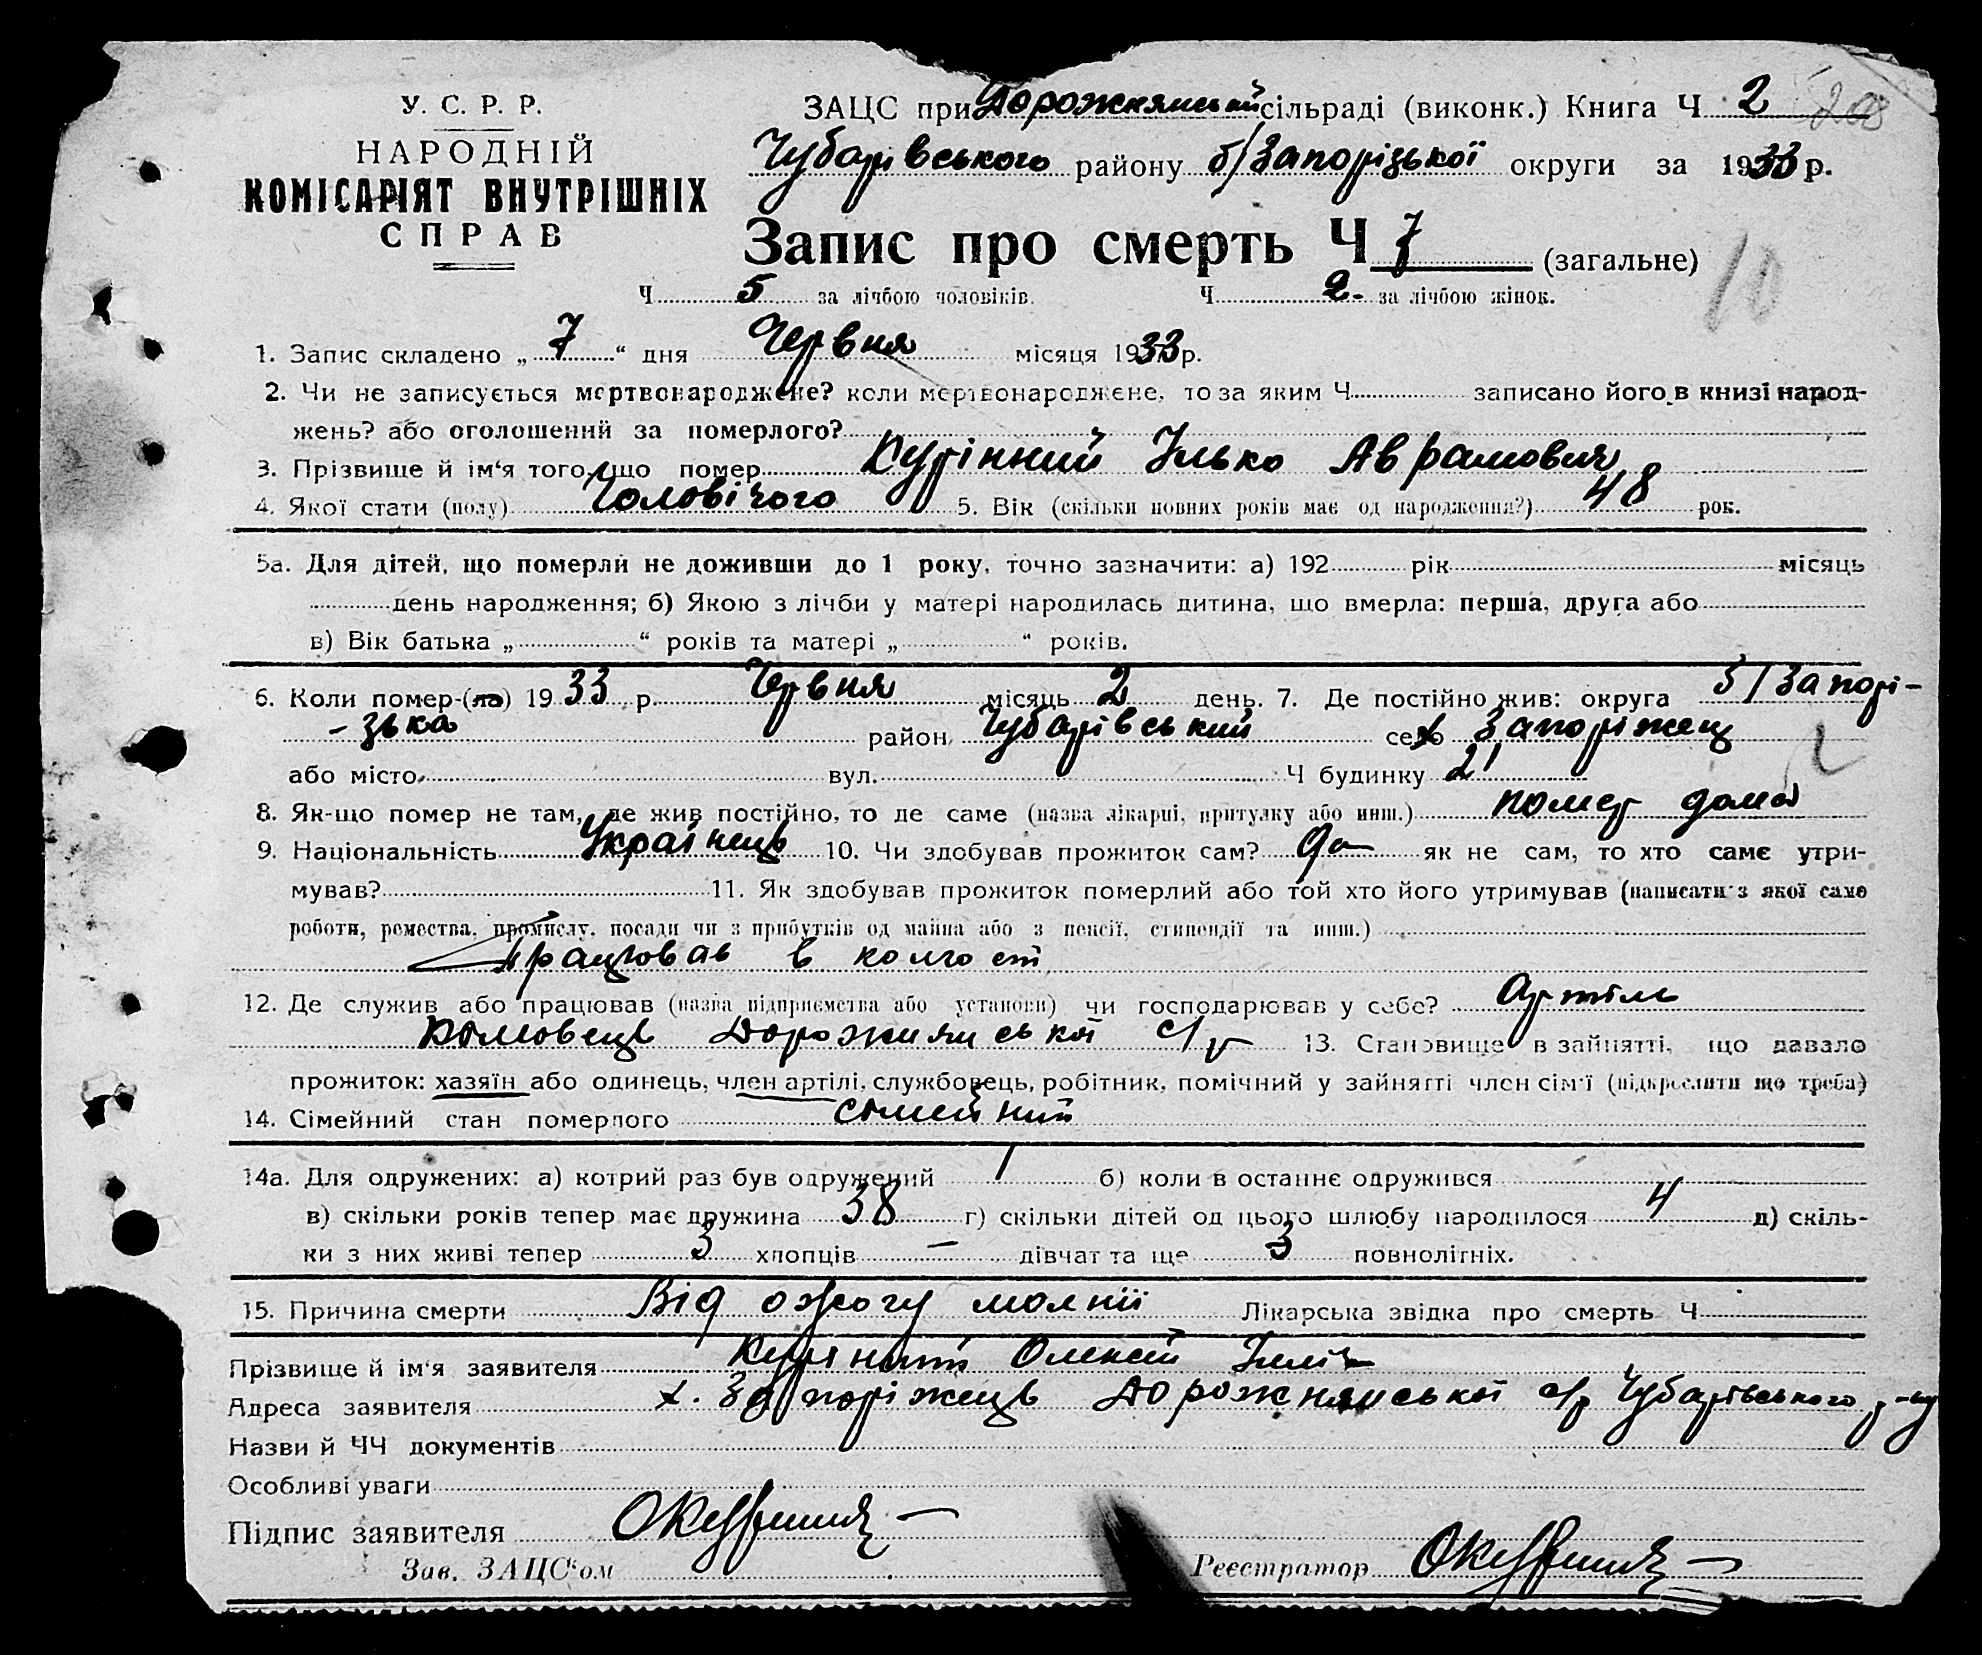 У. С. Р. Р.
НАРОДНІЙ
КОМІСАРІЯТ ВНУТРІШНІХ
СПРАВ
ЗАЦС при Дорожнянській сільраді (виконк.) Книга Ч 2 208
Чубарівського району б/Запорізької округи за 1933 р.
Запис про смерть Ч 7 (загальне)
10
Ч 5 за лічбою чоловіків. Ч 2. за лічбою жінок.
1. Запис складено „ 7 “ дня Червня місяця 1933 р.
2. Чи не записується мертвонароджене? коли мертвонароджене, то за яким Ч записано його в книзі народ-
жень? або оголошений за померлого?
3. Прізвище й ім‘я того, що помер Курінний Ілько Аврамович
4. Якої стати (полу) Чоловічого 5. Вік (скільки повних років має од народження?) 48 рок.
5а. Для дітей, що померли не доживши до 1 року, точно зазначити: а) 192 рік місяць
день народження; б) Якою з лічби у матері народилась дитина, що вмерла: перша, друга або
в) Вік батька „ “ років та матері „ “ років.
6. Коли помер-(ла) 1933 р. Червня місяць 2 день. 7. Де постійно жив: округа б/Запорі-
-зька район Чубарівський село х Запоріжец
або місто вул. Ч будинку 2
8. Як-що помер не там, де жив постійно, то де саме (назва лікарні, притулку або инш.) помер дома
9. Національність Українець 10. Чи здобував прожиток сам? да як не сам, то хто саме утри-
мував? 11. Як здобував прожиток померлий або той хто його утримував (написати з якої саме
роботи, ремества, промислу, посади чи з прибутків од майна або з пенсії, стипендії та инш.)
Працював в колгосп
12. Де служив або працював (назва підприємства або установи) чи господарював у себе? Артіль
Дорожнянської с/р 13. Становище в зайнятті, що давало
прожиток: хазяїн або одинець, член артілі, службовець, робітник, помічний у зайнятті член сім‘ї (підкреслити що треба)
14. Сімейний стан померлого сімейний
14а. Для одружених: а) котрий раз був одружений 1 б) коли в останнє одружився
в) скільки років тепер має дружина 38 г) скільки дітей од цього шлюбу народилося 4 д) скіль-
ки з них живі тепер 3 хлопців — дівчат та ще 3 повнолітніх.
15. Причина смерти Від ожогу молнії Лікарська звідка про смерть Ч
Прізвище й ім‘я заявителя Курінний Олексій Ілліч
Адреса заявителя х. Запоріжець Дорожнянської с/р Чубарівського р-ну
Назви й ЧЧ документів
Особливі уваги
Підпис заявителя
Зав. ЗАЦС‘ом Реєстратор